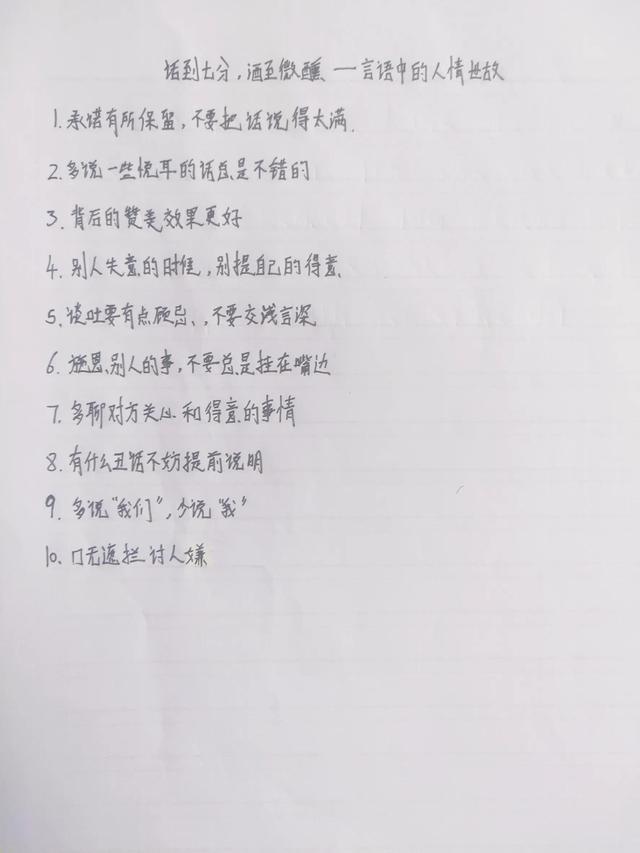 话到七分，酒至微醺 — 言语中的人情世故
1. 承诺有所保留，不要把话说得太满.
2. 多说一些悦耳的话总是不错的
3. 背后的赞美效果更好
4. 别人失意的时候，别提自己的得意
5. 谈吐要有点顾忌、，不要交浅言深
6. 施恩别人的事，不要总是挂在嘴边
7. 多聊对方关心和得意的事情
8. 有什么丑话不妨提前说明
9. 多说“我们”，少说“我”
10. 口无遮拦讨人嫌